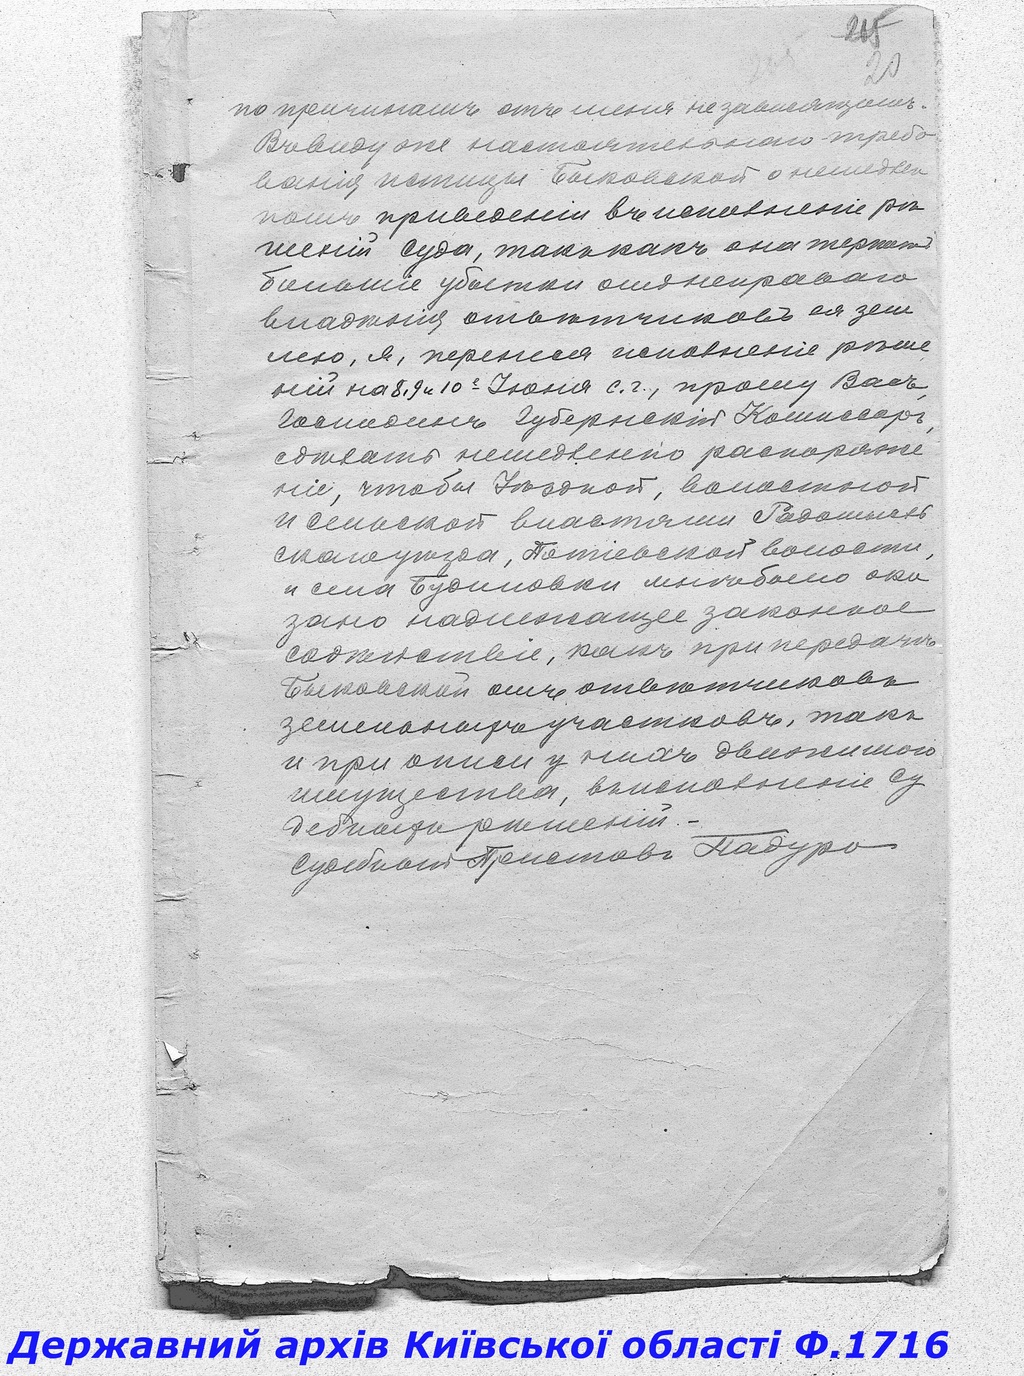 205
20
по причинамъ отъ меня независящимъ.
Въ виду же настоятельнаго требо
ванія истицы Быковской о немедлен
номъ приведеніи въ исполненіе рѣ
шеній Суда, такъ какъ она терпитъ
большіе убытки отъ неправаго
владѣнія отвѣтчиковъ ея зем
лею, я, перенеся исполненіе рѣше
ній на 8, 9 и 10 е Іюня с. г., прошу Васъ,
Господинъ Губернскій Комиссаръ,
сдѣлать немедленно распоряже
ніе, чтобы Уѣздной, волостной
и сельской властями Радомысль
скаго уѣзда, Потіевской волости,
и села Будиловки мнѣ было ока
зано надлежащее законное
содѣйствіе, какъ при передачѣ
Быковской отъ отвѣтчиковъ
земельныхъ участковъ, такъ
и при описи у нихъ движимаго
имущества, въ исполненіе Су
дебныхъ рѣшеній.-
Судебный Приставъ Падуро
Державний архів Київської області Ф.1716